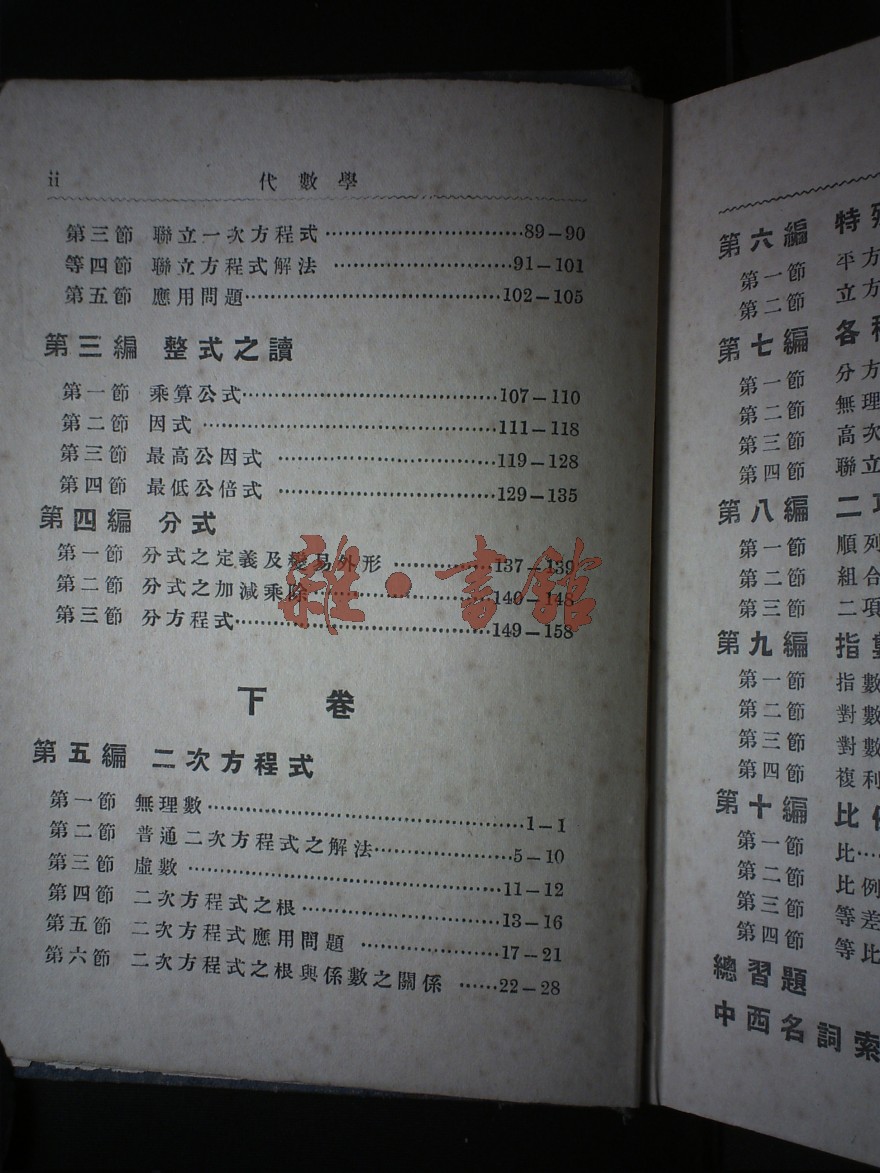 ii 代數學
第三節 聯立一次方程式……………………89—90
等四節 聯立方程式解法 …………………91—101
第五節 應用問題……………………………102—105
第三編 整式之讀
第一節 乘算公式……………………………107—110
第二節 因式 …………………………………111—118
第三節 最高公因式 …………………………119—128
第四節 最低公倍式 …………………………129—135
第四編 分式
第一節 分式之定義及變易外形 …………137—139
第二節 分式之加減乘除……………………140—148
第三節 分方程式……………………………149—158
雜·書館
下卷
第五編 二次方程式
第一節 無理數…………………………………1—1
第二節 普通二次方程式之解法……………5—10
第三節 虛數 …………………………………11—12
第四節 二次方程式之根……………………13—16
第五節 二次方程式應用問題 ……………17—21
第六節 二次方程式之根與係數之關係 ……22—28
第六編 特
第一節 平方
第二節 立方
第七編 各
第一節 分方
第二節 無理
第三節 高次
第四節 聯立
第八編 二
第一節 順列
第二節 組合
第三節 二項
第九編 指
第一節 指數
第二節 對數
第三節 對數
第四節 複利
第十編 比
第一節 比…
第二節 比例
第三節 等差
第四節 等比
總習題
中西名詞索